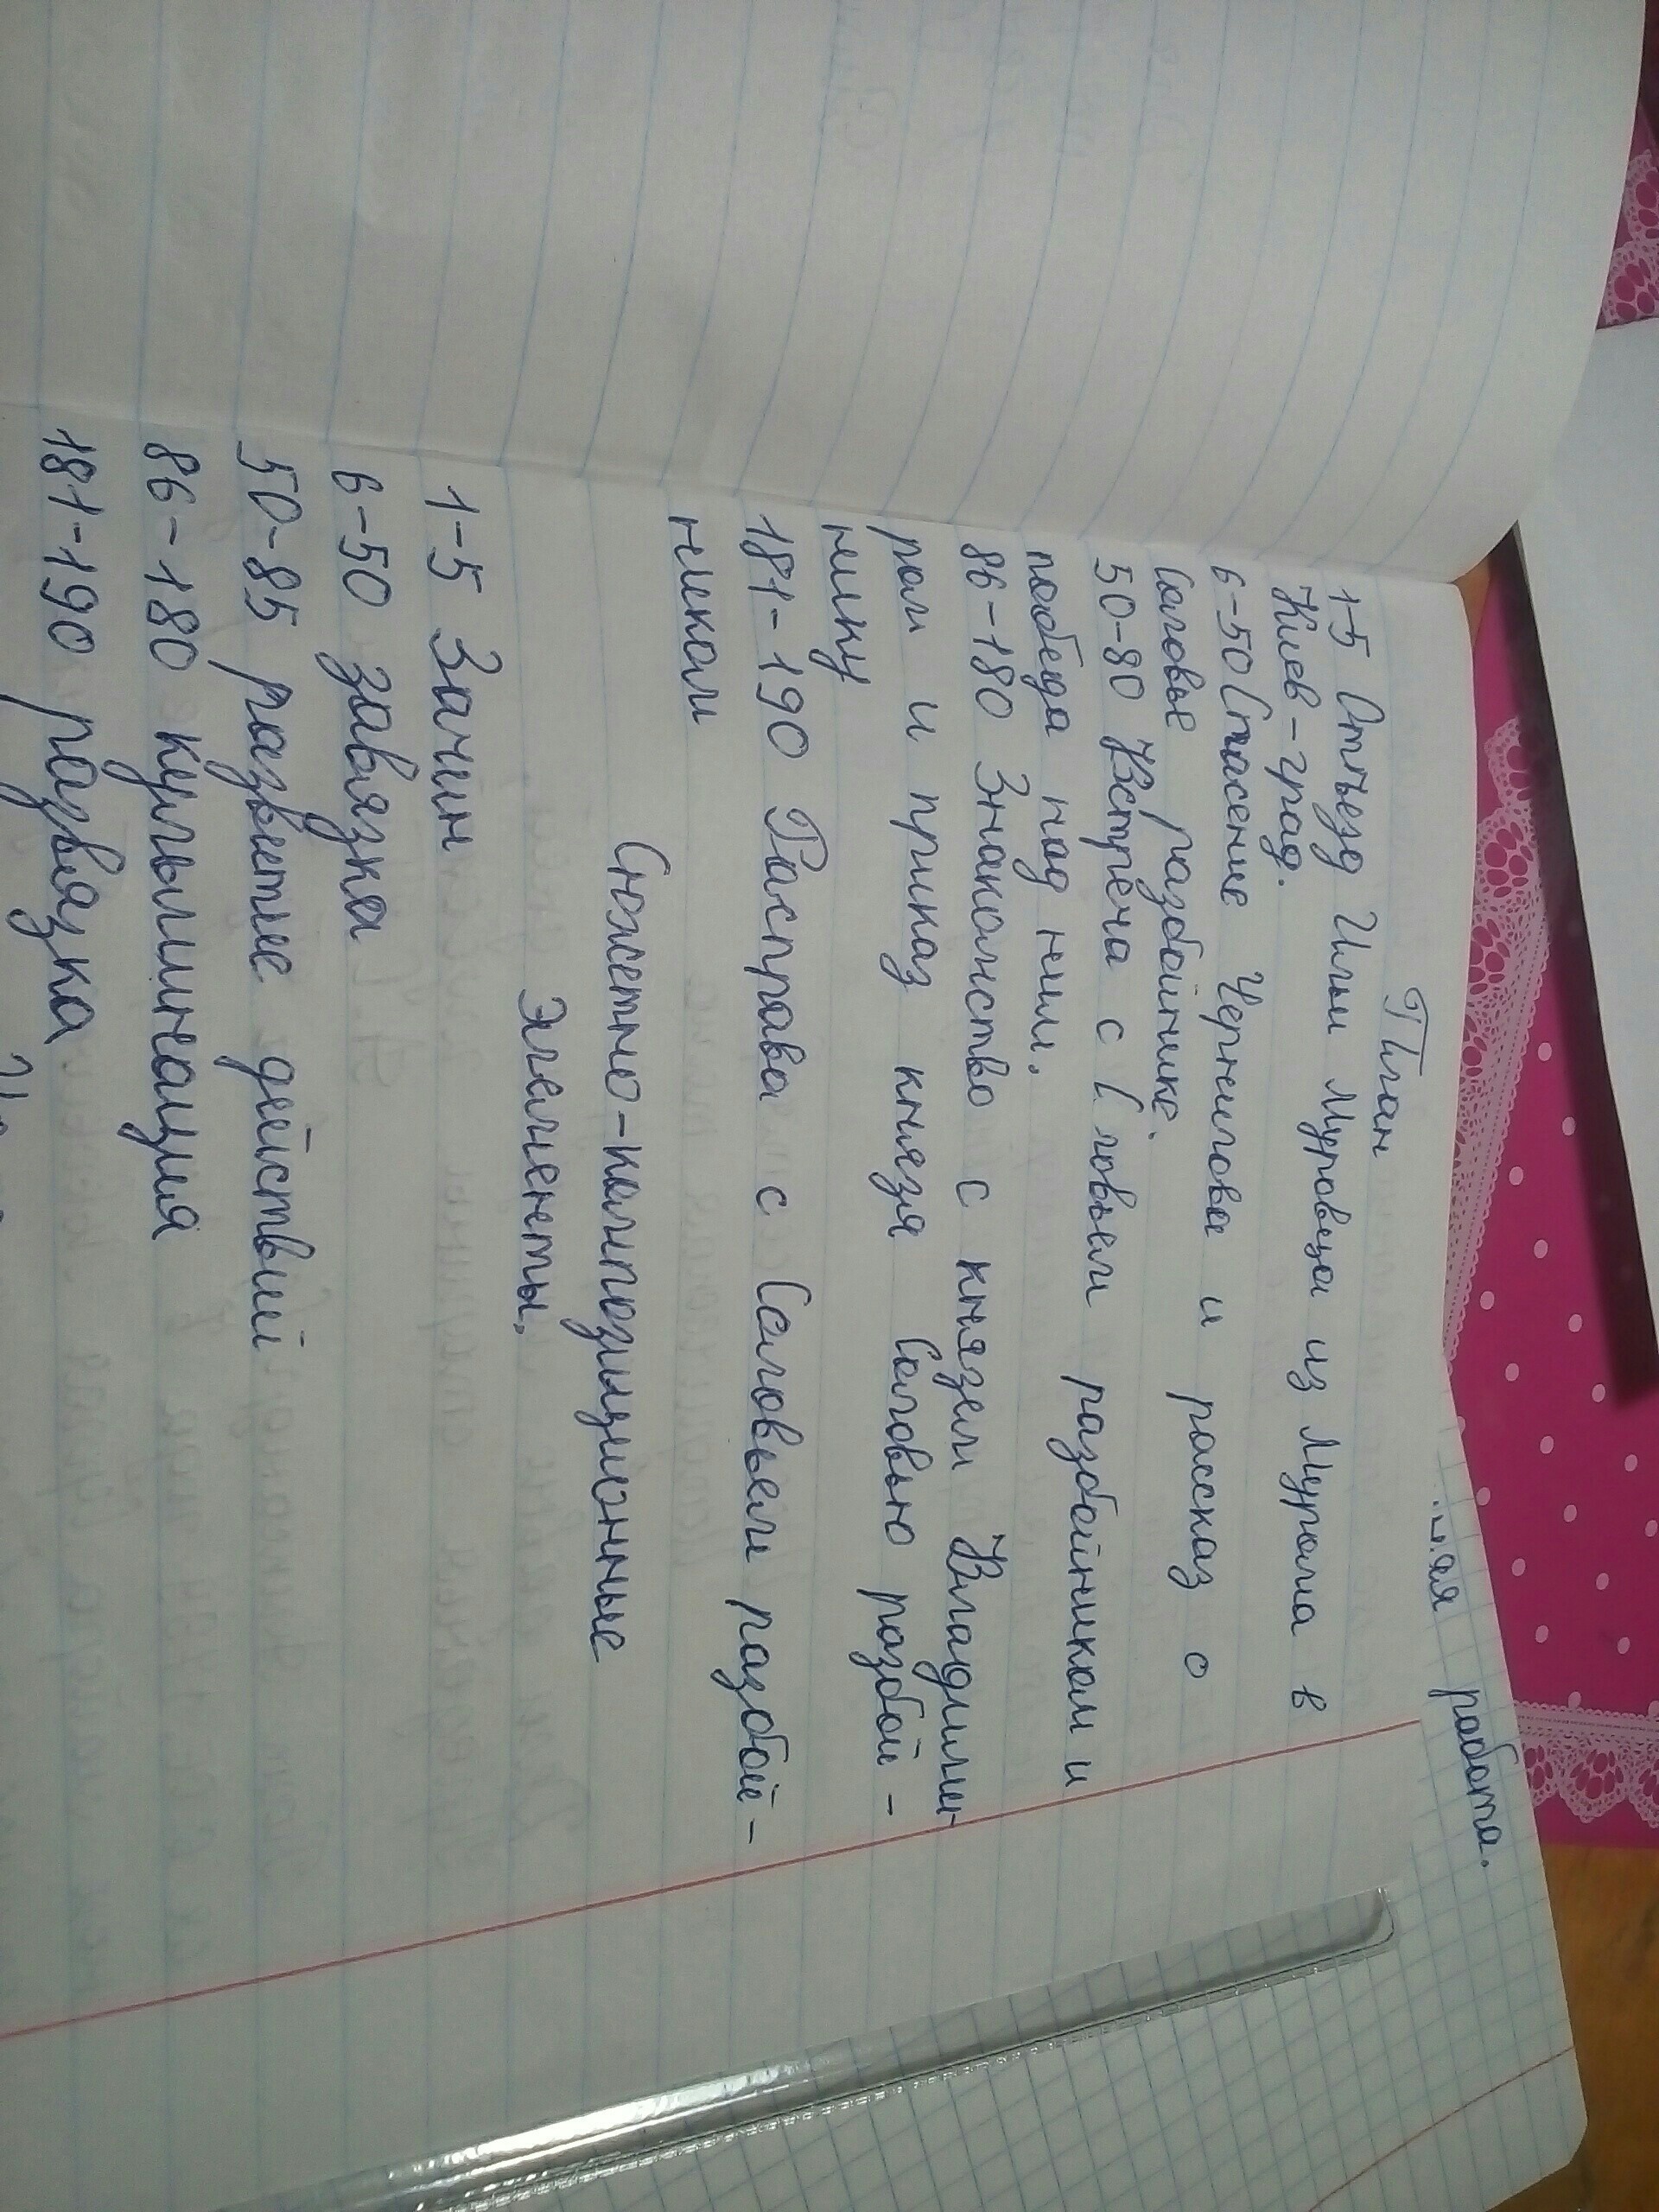 работа.
План
1-5 Отъезд Ильи Муромца из Мурома в
Киев-град.
6-50 Спасение Чернигова и рассказ о
Соловье разбойнике.
50-80 Встреча с С ловьем разбойником и
победа над ним.
86-180 Знакомство с князем Владими-
ром и приказ князя Соловью разбой-
нику
181-190 Расправа с Соловьем разбой-
ником
Сюжетно-композиционные
элементы.
1-5 Зачин
6-50 завязка
50-85 развитие действий
86-180 кульминация
181-190 развязка